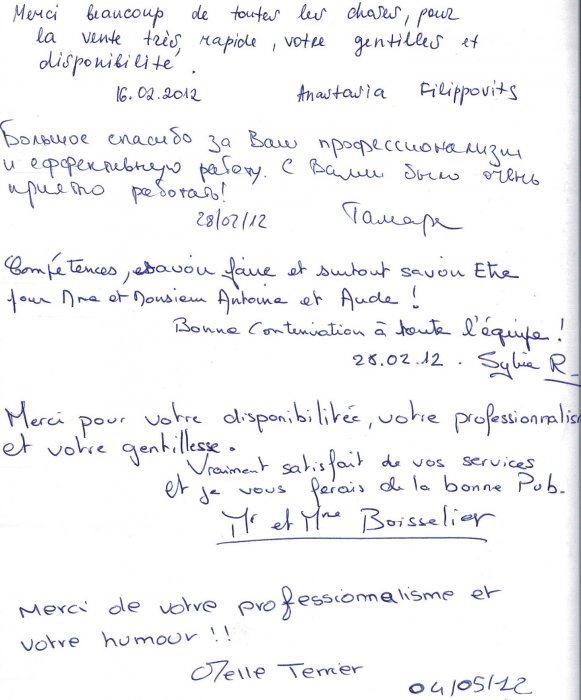 Merci beaucoup de toutes les choses, pour
la vente très rapide, votre gentilles et
disponibilité.
16.02.2012 Anastasia Filippovits
Большое спасибо за Ваш профессионализм
и еффективную работу. С Вами было очень
приятно работать!
28/02/12 Тамара
Compétences, savoir faire et surtout savoir Etre
pour Mme et Monsieur Antoine et Aude !
Bonne Continuation à toute l'équipe !
28.02.12. Sylvie R_
Merci pour votre disponibilitée, votre professionnalism
et votre gentillesse.
Vraiment satisfait de vos services
et je vous ferais de la bonne Pub.
Mr et Mme Boisselier
Merci de votre professionnalisme et
votre humour !!
Melle Terrier
04/05/12